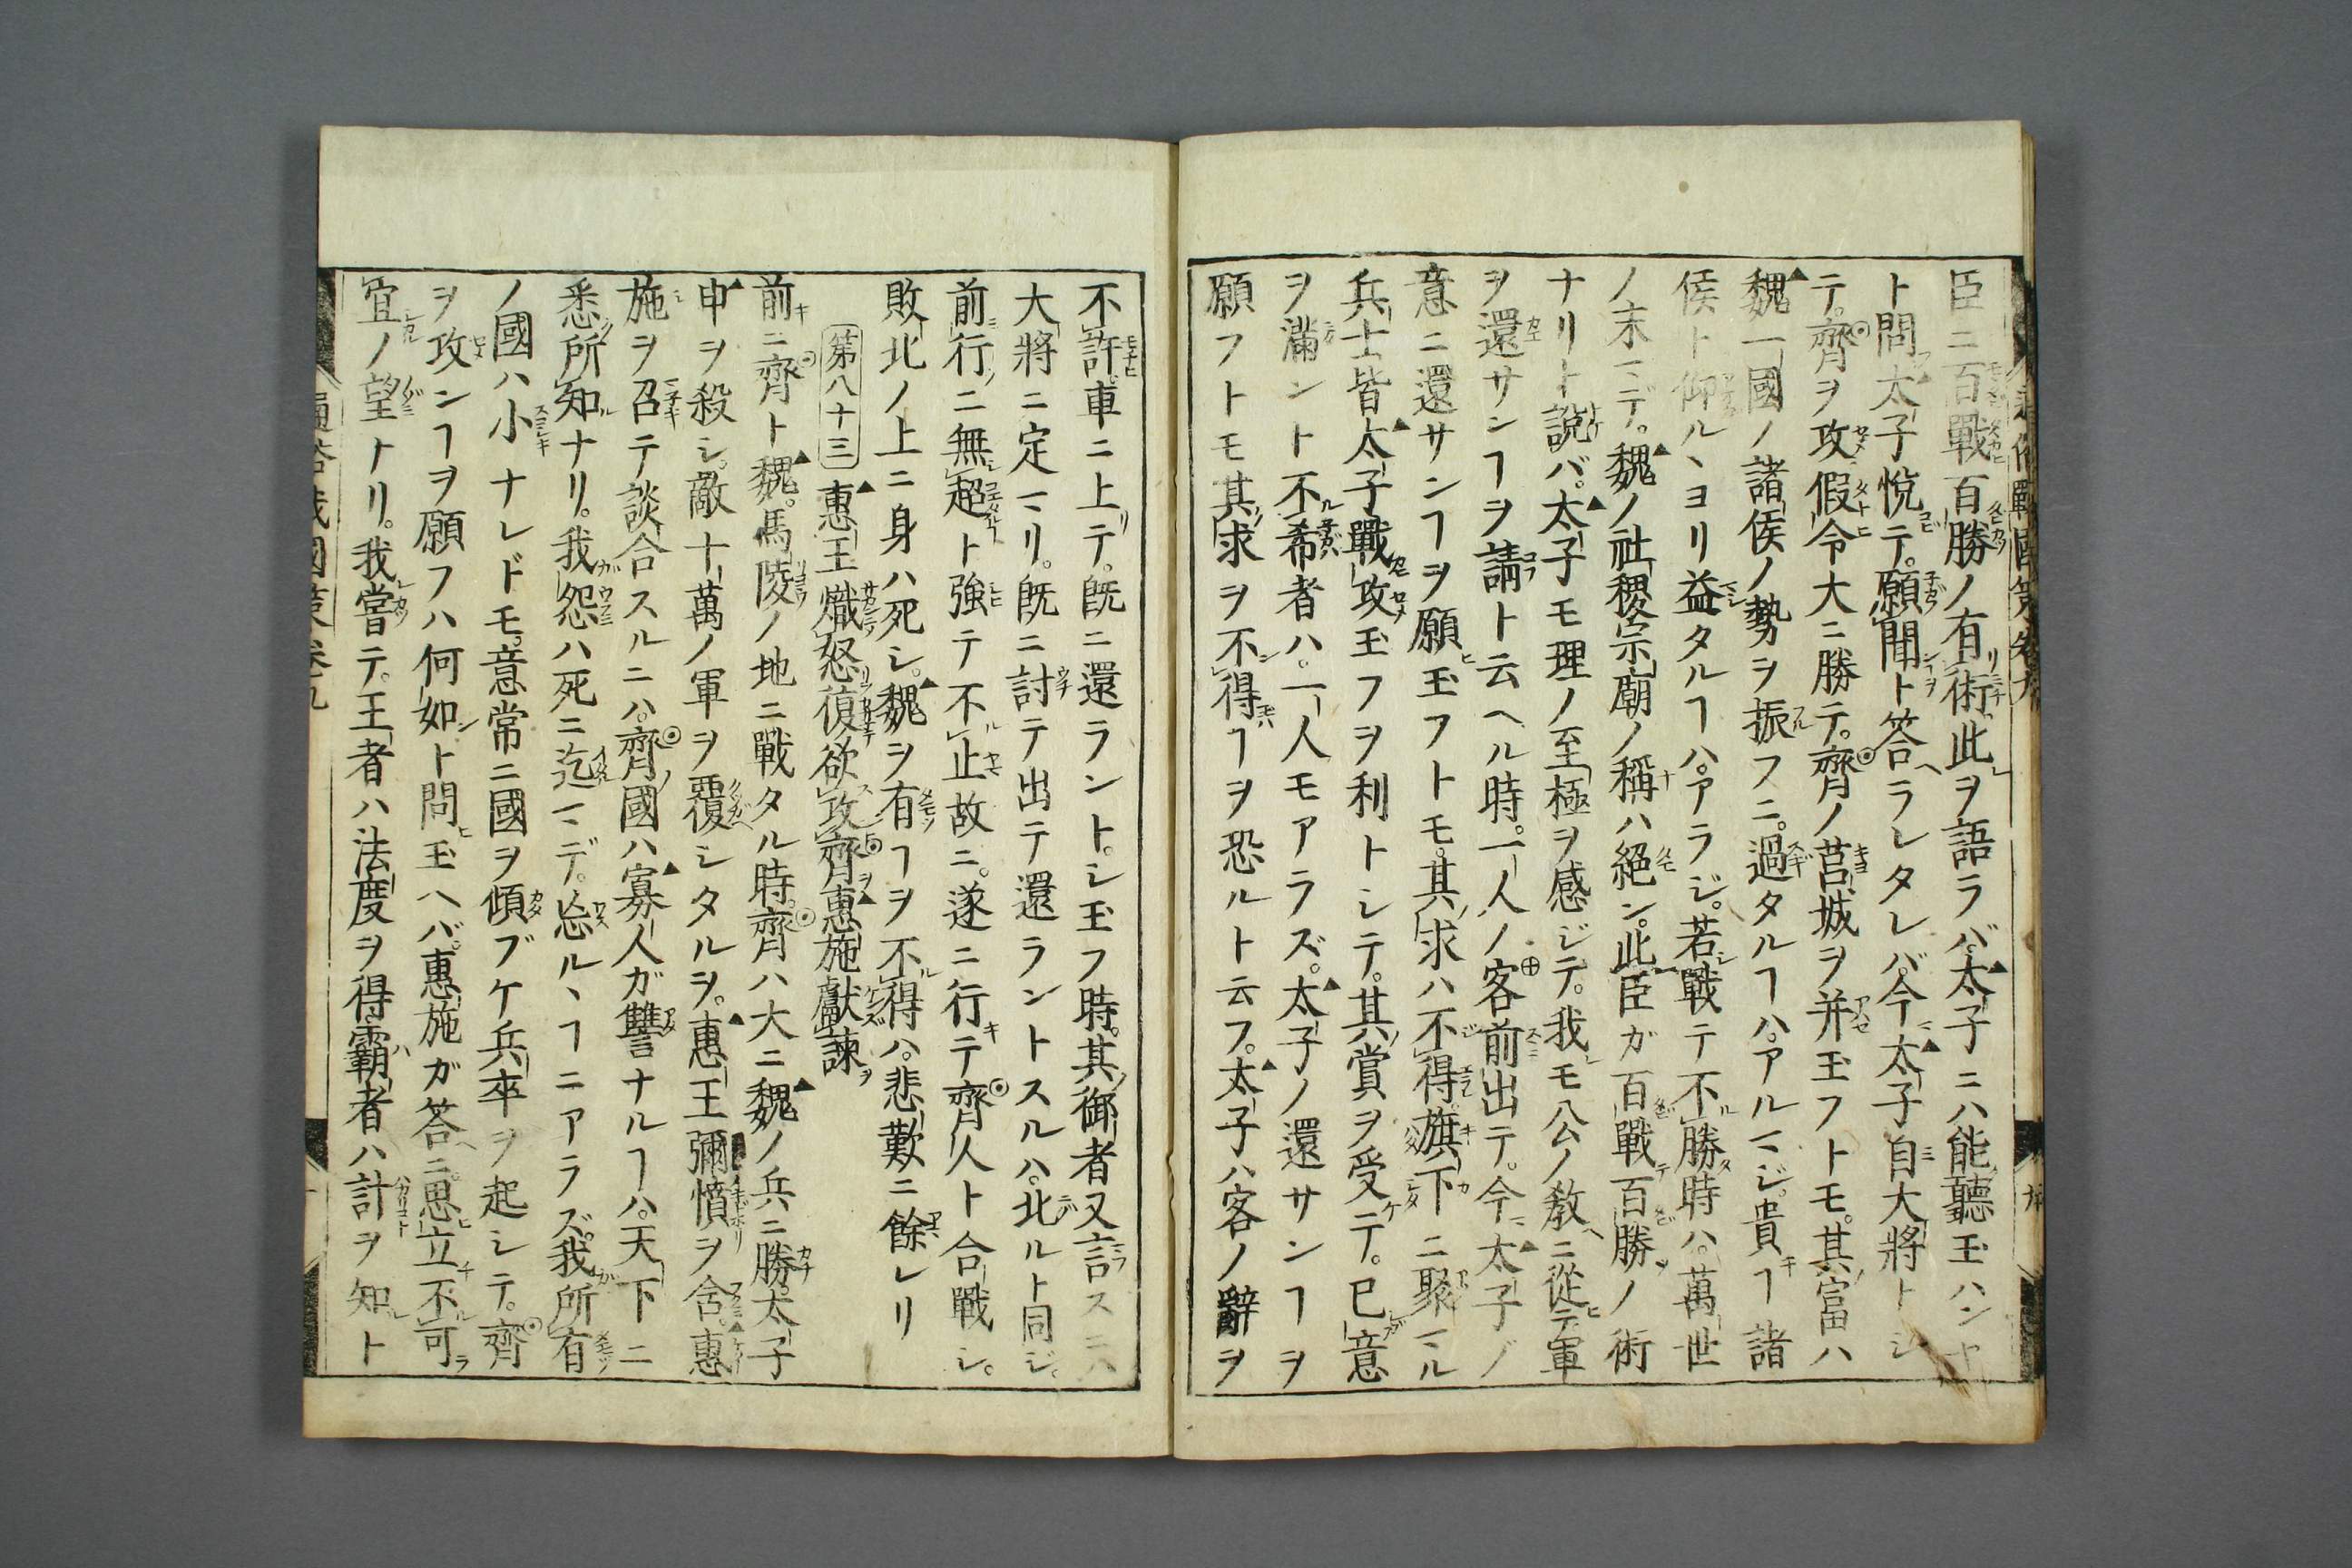 臣ニ百戰百勝ノ有術此ヲ語ラバ太子ニハ能聽玉ハンヤ
ト問太子悦テ。願聞ト答ラレタレバ今太子自大將トシ
テ。齊ヲ攻假令大ニ勝テ。齊ノ莒城ヲ并玉フトモ。其富ハ
魏一國ノ諸侯ノ勢ヲ振フニ。過タルヿハ。アルマジ。貴ヿ諸
侯ト仰ルヽヨリ益タルヿハ。アラジ。若戰テ不勝時ハ。萬世
ノ末マデ。魏ノ社稷宗廟ノ稱ハ絕ン。此臣ガ百戰百勝ノ術
ナリト説バ。太子モ理ノ至極ヲ感ジテ。我モ公ノ教ニ從テ軍
ヲ還サンヿヲ請ト云ヘル時。一人ノ客前出テ。今太子ノ
意ニ還サンヿヲ願玉フトモ。其求ハ不得。旗下ニ聚マル
兵士皆太子戰攻玉フヲ利トシテ。其賞ヲ受テ。已意
ヲ滿ント不希者ハ。一人モアラズ。太子ノ還サンヿヲ
願フトモ其求ヲ不得ヿヲ恐ルト云フ。太子ハ客ノ辭ヲ
不許車ニ上テ。既ニ還ラントシ玉フ時。其御者又言スニハ
大將ニ定マリ。既ニ討テ出テ還ラントスルハ。北ルト同ジ。
前行ニ無超ト強テ不止故ニ。遂ニ行テ齊人ト合戰シ。
敗北ノ上ニ身ハ死シ。魏ヲ有ヿヲ不得ハ。悲歎ニ餘レリ
第八十三 惠王熾怒復欲攻齊惠施獻諫
前ニ齊ト魏。馬陵ノ地ニ戰タル時。齊ハ大ニ魏ノ兵ニ勝。太子
申ヲ殺シ。敵十萬ノ軍ヲ覆シタルヲ。惠王彌憤ヲ含。惠
施ヲ召テ談合スルニハ。齊國ハ寡人ガ讐ナルヿハ。天下ニ
悉所知ナリ。我怨ハ死ニ迄マデ。忘ルヽヿニアラズ。我所有
ノ國ハ小ナレドモ。意常ニ國ヲ傾ブケ兵卒ヲ起シテ。齊
ヲ攻ンヿヲ願フハ何如ト問玉ヘバ。惠施ガ答ニ。思立不可
宜ノ望トリ。我嘗テ。王者ハ法度ヲ得霸者ハ計ヲ知ト